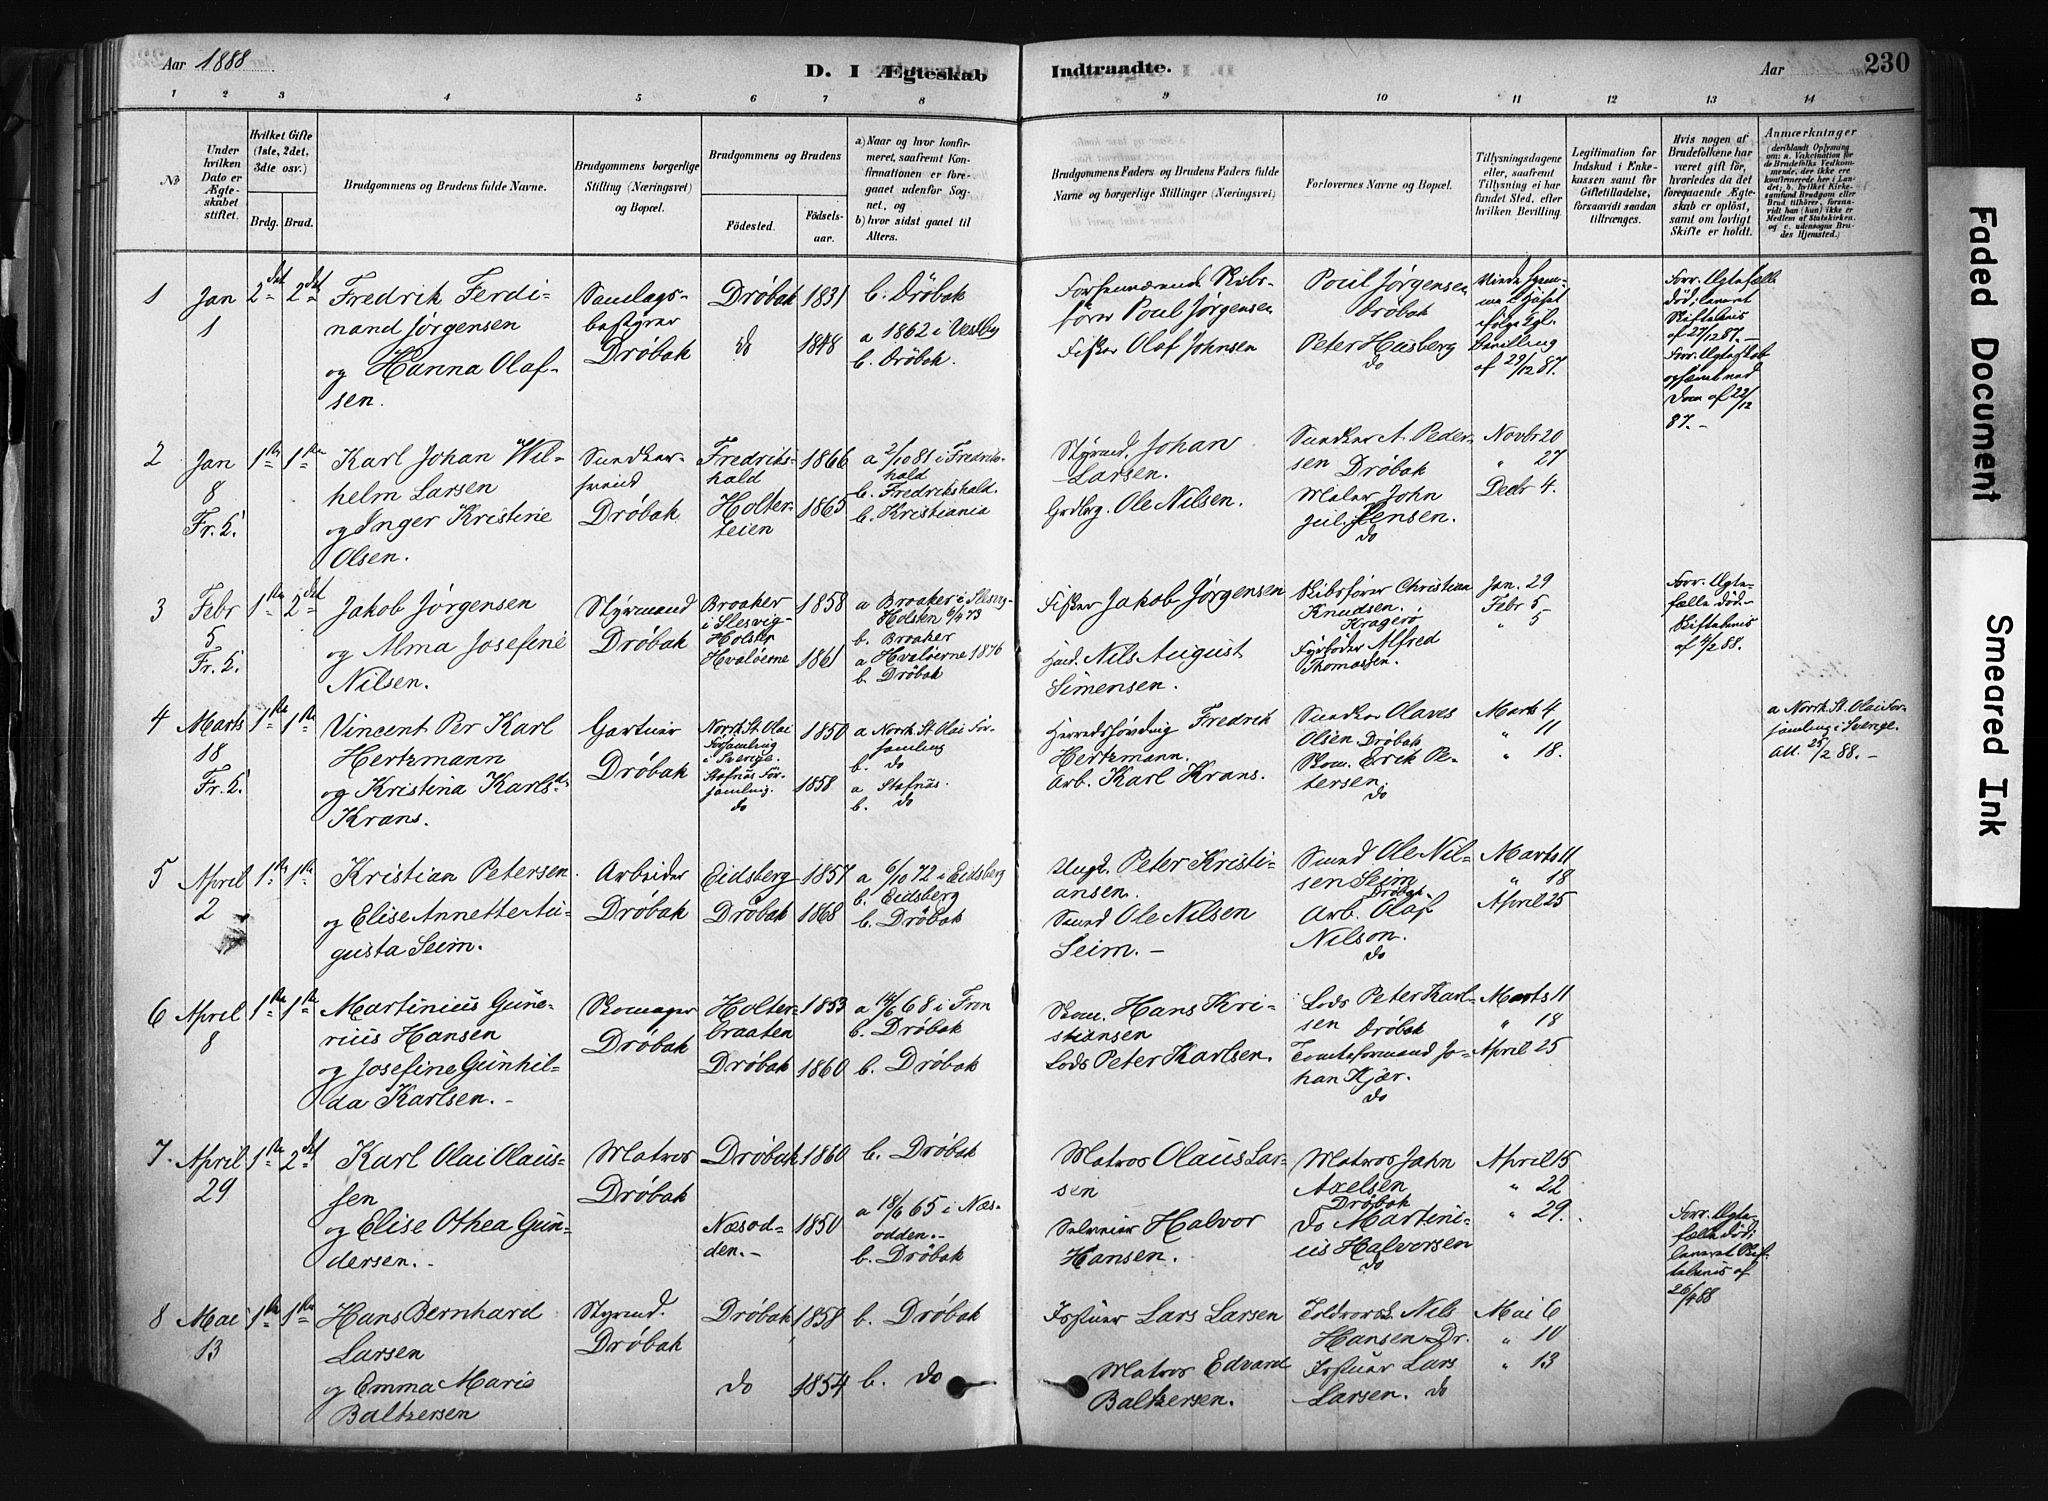 Aar 1888
D. I Ægteskab Indtraadte.
Aar
230
1 2 3 4 5 6 7 8 9 10 11 12 13 14
No
Under hvilken Dato er Ægteskabet stiftet.
Hvilket Gifte (1ste, 2det, 3die osv.)
Brdg. Brud.
Brudgommens og Brudens fulde Navne.
Brudgommens borgerlige Stilling (Næringsvei) og Bopæl.
Brudgommens og Brudens
Fødested.
Fødselsaar.
a) Naar og hvor konfirmeret, saafremt Konfirmationen er foregaaet udenfor Sognet, og
b) hvor sidst gaaet til Alters.
Brudgommens Faders og Brudens Faders fulde Navne og borgerlige Stillinger (Næringsvei)
Forlovernes Navne og Bopæl.
Tillysningsdagene eller, saafremt Tillysning ei har fundet Sted, efter hvilken Bevilling.
Legitimation for Indskud i Enkekassen samt for Giftetilladelse, forsaavidt saadan tiltrænges.
Hvis nogen af Brudefolkene har været gift før, hvorledes da det foregaaende Ægteskab er opløst, samt om lovligt Skifte er holdt.
Anmærkninger
1 Jan 1 2det 2det
Fredrik Ferdinand Jørgensen
og Hanna Olafsen.
Samlagsbestyrer
Drøbak
Drøbak 1831 b. Drøbak
do 1848 a 1862 i Vestby
b. Drøbak.
Skibsfører Poul Jørgensen
Fisker Olaf Johnsen
Poul Jørgensen
Drøbak
Peter Husberg
do
Bevilling
af 29/12 87.
Forr. Ægtefælle
død;
af 27/12 87. —
Forr. Ægteskab
ophævet ved
Dom af 22/12
87. —
2 Jan 8 Fr. K. 1ste 1ste
Karl Johan Wilhelm Larsen
og Inger Kristine
Olsen.
Drøbak
Fredrikshald 1866 a 2/10 81 i Fredrikshald
b. Fredrikshald.
Holterteien 1865 b. Kristiania
Styrmd. Johan
Larsen.
Grdbrg. Ole Nilsen.
A. Pedersen Drøbak
Maler John
Jensen.
do
Novbr 20
" 27
Decbr 4.
3 Febr 5 Fr. K. 1ste 2det
Jakob Jørgensen
og Alma Josefine
Nilsen.
Styrmand
Drøbak
Broaker
i Slesvig-
Holsten
1858 a Broaker i Slesvig-
Holsten 6/4 73
b. Broaker
Hvaløerne 1861 a Hvaløerne 1876
b. Drøbak
Fisker Jakob Jørgensen
Nils August
Simensen.
Skibsfører Christian
Knudsen.
Kragerø
Fyrbøder Alfred
Thomassen.
Jan. 29
Febr 5
" 5
Forr. Ægtefælle død. —
Skiftebevis
af 4/2 88.
4 Marts 18 Fr. K. 1ste 1ste
Vincent Per Karl
Hertzmann
og Kristina Karlsdr
Krans.
Gartner
Drøbak
Norrk. St. Olai
Församling
i Sverige.
1850 a Norrk. St. Olai Församling
b. do
Stafnäs Församling.
do
1858 a Stafnäs.
b. do
Herredshövding Fredrik
Hertzmann.
Arb. Karl Krans.
Olaves
Olsen. Drøbak
Skom. Erik Petersen
do
Marts 4
" 11
" 18.
a Norrk. St. Olai Församling i Sverige.
Att. 25/2 88. —
5 April 2 1ste 1ste
Kristian Petersen
og Elise Annette Augusta Seim.
Arbeider
Drøbak
Eidsberg 1857 a 6/10 72 i Eidsberg
b. Eidsberg
Drøbak 1868 b. Drøbak
Peter Kristiansen.
Smed Ole Nilsen
Seim. —
Smed Ole Nilsen Seim
Drøbak
Arb. Olaf
Nilson.
do
Marts 11
" 18
April 25
6 April 8 1ste 1ste
Martinius Gunerius Hansen
og Josefine Gunhilda Karlsen. -
Skomager
Drøbak
Holterbraaten 1853 a 14/6 68 i Fron
b. Drøbak
Drøbak 1860 b. Drøbak
Skom. Hans Kristiansen
Lods Peter Karlsen.
Lods Peter Karlsen Drøbak
Tomteformand Johan Kjær.
do
Marts 11
" 18
April 25
7. April 29 1ste 2det
Karl Olai Olaussen
og Elise Othea Gundersen. -
Matros
Drøbak
Drøbak 1860 b. Drøbak
Næsodden. — 1850 a 18/6 65 i Næsodden. —
b. Drøbak
Matros Olaus Larsen
Selveier Halvor
Hansen.
Matros Jahn
Axelsen
Drøbak
do Martinius Halvorsen
do
April 15
" 22
" 29.
Forr. Ægtefælle død;
leveret Skiftebevis af
26/4 88
8 Mai 13 1ste 1ste
Hans Bernhard
Larsen
og Emma Marie
Baltzersen
Styrmd.
Drøbak
Drøbak 1858 b. Drøbak
do 1854 b. do
Lars Larsen
Matros Edvard
Baltzersen.
Nils
Hansen Dr.
Lars
Larsen. do
Mai 6
" 10
" 13
Faded Document
Smeared Ink